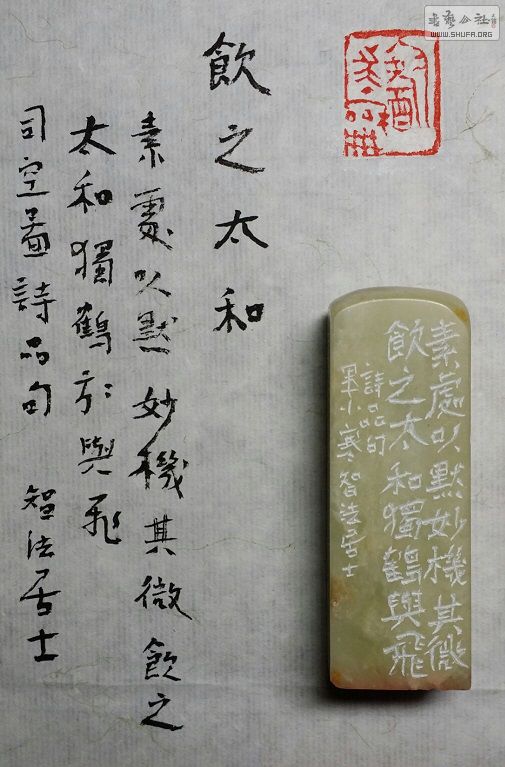 书艺公社
WWW.SHUFA.ORG
飲之太和
素處以默妙機其微飲之
太和獨鶴與飛
司空啚詩品句 智法居士
素處以默妙機其微
飲之太和獨鶴與飛
詩品句
小寒智法居士